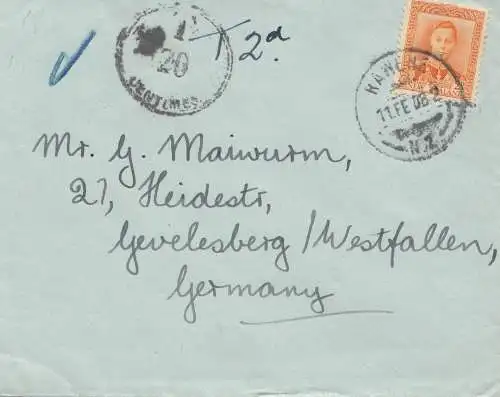 T 2d.
20
CENTIMES
11 FE 08 2
N.Z.
Mr. G. Maiwurm,
27, Heidestr,
Gevelesberg / Westfallen,
Germany